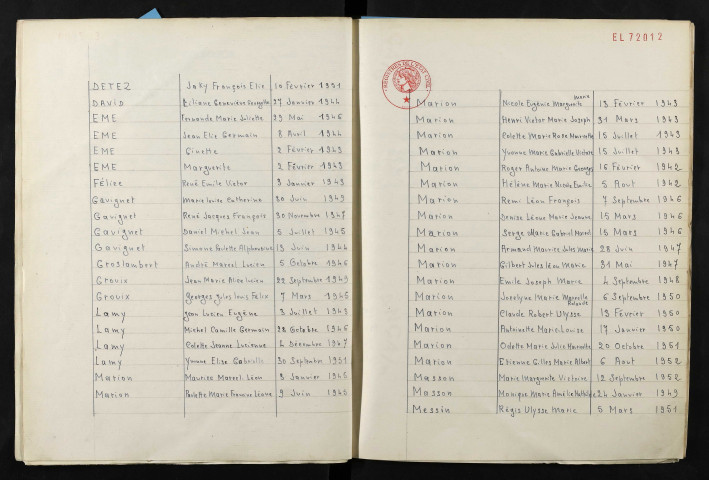 DETEZ Jaky François Elie 10 Février 1951
DAVID Liliane Geneviève Georgette 27 Janvier 1944
EME Fernande Marie Juliette 29 Mai 1946
EME Jean Elie Germain 8 Avril 1944
EME Ginette 2 Février 1943
EME Marguerite 2 Février 1943
Félice René Emile Victor 3 Janvier 1943
Gavignet Marie Louise Catherine 30 Juin 1949
Gavignet René Jacques François 30 Novembre 1947
Gavignet Daniel Michel Jean 5 Juillet 1945
Gavignet Simone Paulette Alphonsine 13 Juin 1944
Groslambert André Marcel Lucien 5 Octobre 1946
Groux Jean Marie Alice Lucien 22 Septembre 1949
Groux Georges Gilles Louis Félix 7 Mars 1945
Lamy Jean Lucien Eugène 3 Juillet 1943
Lamy Michel Camille Germain 28 Octobre 1946
Lamy Colette Jeanne Lucienne 4 Décembre 1947
Lamy Yvonne Elise Gabrielle 30 Septembre 1951
Marion Maurice Marcel Léon 3 Janvier 1945
Marion Paulette Marie Léone 9 Juin 1945
EL 72012
Marion Nicole Eugénie Marguerite Marie 13 Février 1943
Marion Henri Victor Marie Joseph 31 Mars 1943
Marion Colette Marie Rose Henriette 15 Juillet 1943
Marion Yvonne Marie Gabrielle Victoire 15 Juillet 1943
Marion Roger Antoine Marie Georges 16 Février 1942
Marion Hélène Marie Nicole Emilie 5 Aout 1942
Marion Remi Léon François 7 Septembre 1946
Marion Denise Léone Marie Jeanne 15 Mars 1946
Marion Serge Marie Gabriel Marcel 15 Mars 1946
Marion Armand Maurice Jules Marie 28 Juin 1947
Marion Gilbert Jules Léon Marie 31 Mai 1947
Marion Emile Joseph Marie 4 Septembre 1948
Marion Jocelyne Marie Marcelle Rolande 6 Septembre 1950
Marion Claude Robert Ulysse 19 Février 1950
Marion Antoinette Marie Louise 17 Janvier 1950
Marion Odette Marie Julie Henriette 20 Octobre 1951
Marion Etienne Gilles Marie Albert 6 Aout 1952
Masson Marie Marguerite Victoire 12 Septembre 1952
Masson Monique Marie Amélie Mathilde 24 Janvier 1949
Messin Régis Ulysse Marie 5 Mars 1951